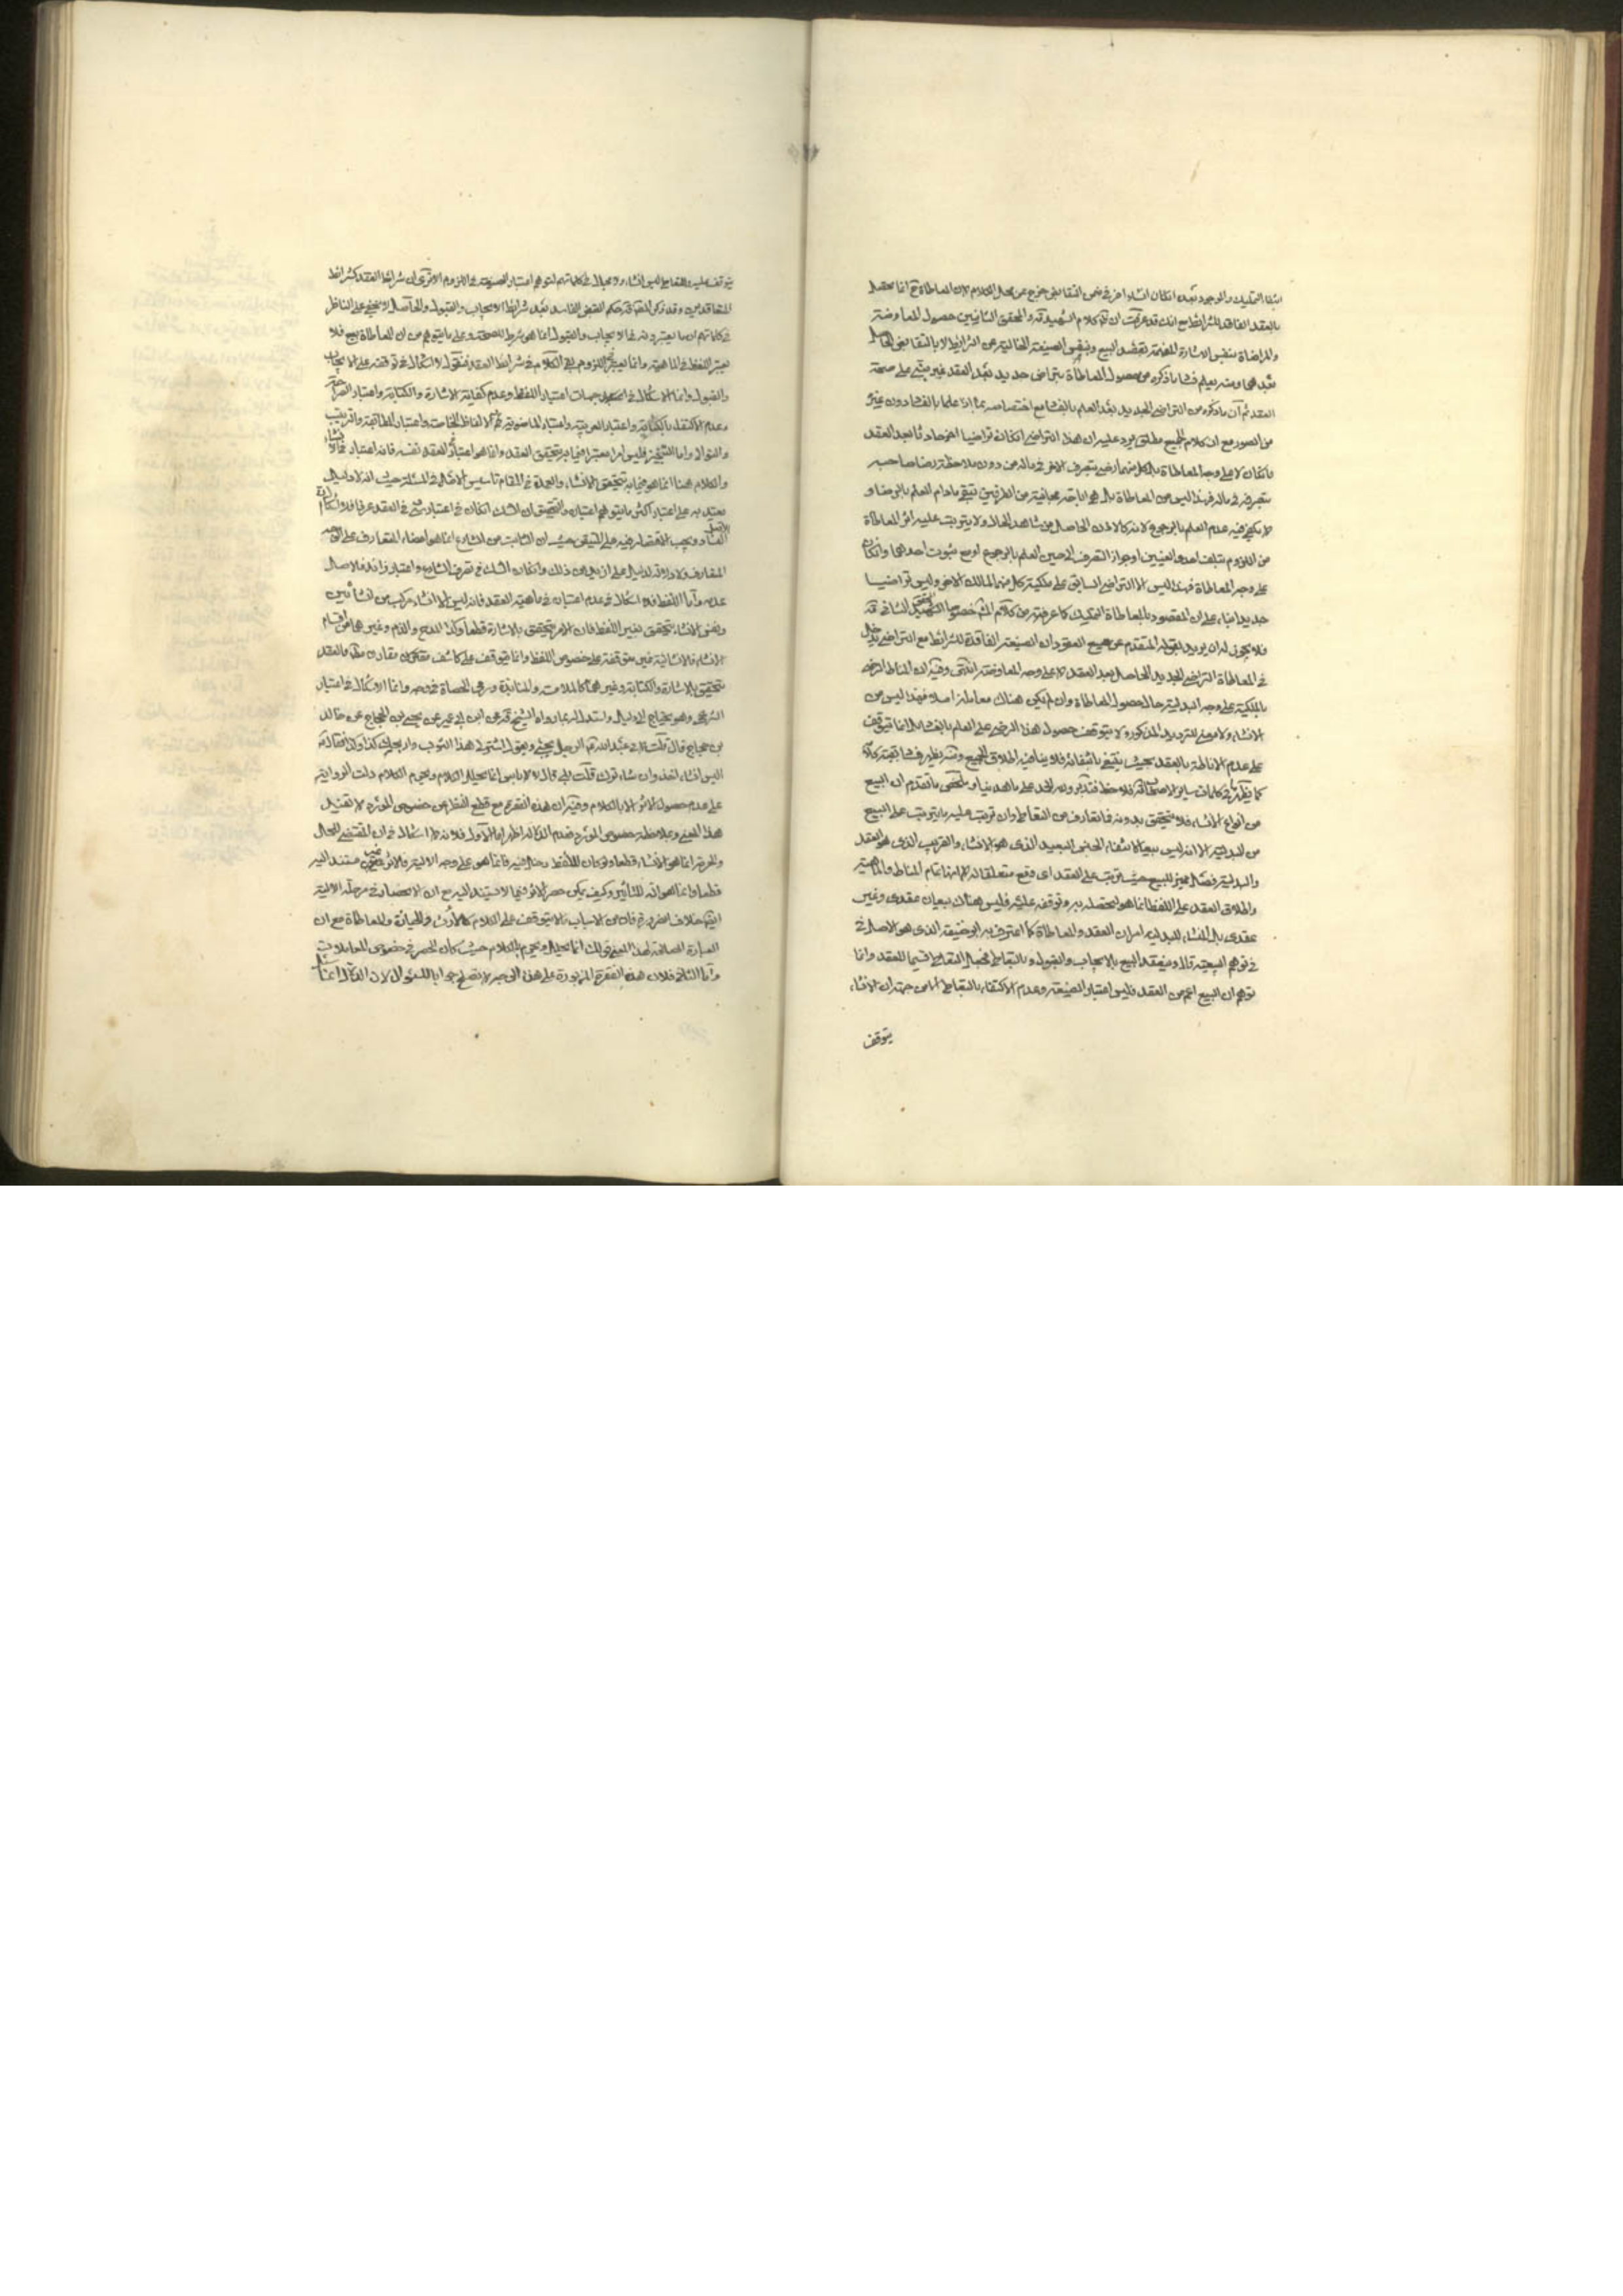 انشاء التمليك والوجود بعد امكان انشاء اخر في ضمن التقابض خرج عن محل الكلام لان المعاطاة ح انما تحصل
بالعقد الفاقد للشرائط مع انك قد عرفت ان كلام الشهيد قده والمحقق الثانيين حصول المعاوضة
والمراضاة بنفس الاشارة المفهمة بقصد البيع وبنفس الصيغة الخالية عن الشرايط لا بالتقابض الحاصل
بعدهما ومنه يعلم فساد ما ذكره من حصول المعاطاة بتراضي جديد بعد العقد غير مبني على صحة
العقد ثم ان ما ذكره من التراضي الجديد بعد العلم بالفساد مع اختصاصه بما اذا علما بالفساد دون غيره
من الصور مع ان كلام الجميع مطلق يرد عليه ان هذا التراضي ان كان تراضيا اخر حادثا بعد العقد
فان كان لا على وجه المعاطاة بل كل منهما رضي بتصرف الاخر في ماله من دون ملاحظة رضا صاحبه
بتصرفه في ماله فهذا ليس من المعاطاة بل هي اباحة مجانية من الطرفين تبقى ما دام العلم بالرضا و
لا يكفي فيه عدم العلم بالرجوع لانه كالاذن الحاصل من شاهد الحال ولا يترتب عليه اثر المعاطاة
من اللزوم بتلف احدى العينين او جواز التصرف الى حين العلم بالرجوع او مع ثبوت احدهما وان كان
على وجه المعاطاة فهذا ليس الا التراضي السابق على ملكية كل منهما لمالك الاخر وليس تراضيا
جديدا بناء على ان المقصود بالمعاطاة التمليك كما عرفته من كلام المشهور خصوصا المحقق الثاني قده
فلا يجوز له ان يريد بقوله المتقدم عن صيغ العقود ان الصيغة الفاقدة للشرائط مع التراضي تدخل
في المعاطاة التراضي الجديد الحاصل بعد العقد لا على وجه المعاوضة انتهى وفيه ان المناط الرضى
بالملكية على وجه البدلية حال حصول المعاطاة وان لم يكن هناك معاملة اصلا فهذا ليس من
الانشاء ولا معنى للترديد المذكور ولا يتوقف حصول هذا الرضى على العلم بالفساد انما يتوقف
على عدم الاناطة بالعقد بحيث ينتفي بانتفائه فلا ينافيه اطلاق الجميع ومنه يظهر فساد بقية كلامه
كما يظهر ما في كلمات ساير الاساطين فلا حظ فتدبر وله الحمد على ما هدينا وملخص ما تقدم ان البيع
من انواع الانشاء فلا يتحقق بدونه فما تعارف من التعاطي وان ترتب عليه ما يترتب على البيع
من البدلية الا انه ليس بيعا لانتفاء الجنس البعيد الذي هو الانشاء والقريب الذي هو العقد
والبدلية فصل مميز للبيع حيث ترتب على العقد اى وقع متعلقا له لا انها تمام المناط والماهية
واطلاق العقد على اللفظ انما هو لحصوله به وتوقفه عليه فليس هناك بيعان عقدى وغير
عقدى بل المنشاء للبدلية امران العقد والمعاطاة كما اعترف به ابو حنيفة الذى هو الاصل في
توهم البيعية قال وينعقد البيع بالايجاب والقبول وبالتعاطي فجعل التعاطي قسيما للعقد وانما
توهم ان البيع اعم من العقد فليس اعتبار الصيغة وعدم الاكتفاء بالتعاطي الا من جهة ان الانشاء
يتوقف
يتوقف عليه والتعاطي ليس انشاء ولا مجال في كلماتهم لتوهم اعتبار الصيغة في اللزوم الا ترى ان شرائط العقد كشرائط
المتعاقدين وقد ذكر المحقق قده حكم القبض الفاسد بعد شرائط الايجاب والقبول والحاصل لا يخفى على الناظر
في كلماتهم ان ما يعتبرونه في الايجاب والقبول انما هو شرط للصحة وعلى ما يتوهم من ان المعاطاة بيع فلا
يعتبر اللفظ في الماهية وانما يعتبر في اللزوم بقي الكلام في شرائط العقد فنقول لا اشكال في توقفه على الايجاب
والقبول وانما الاشكال في جهات اعتبار اللفظ وعدم كفاية الاشارة والكتابة واعتبار الصراحة
وعدم الاكتفاء بالكناية واعتبار العربية واعتبار الماضوية ثم الالفاظ الخاصة واعتبار المطابقة والترتيب
والتوالى واما التنجيز فليس امرا معتبرا فيما به يتحقق العقد وانما هو اعتبار للعقد نفسه فانه اعتبار في الانشاء
والكلام هنا انما هو فيما به يتحقق الانشاء والعمدة في المقام تاسيس الاصل في المسئلة حيث انه لا دليل
يعتد به على اعتبار اكثر ما يتوهم اعتباره والتحقيق ان الشك ان كان في اعتبار شيء في العقد عرفا فلا اشكال ان الاصل
الفساد ويجب الاقتصار فيه على المتيقن حيث ان الثابت من الشارع انما هو امضاء المتعارف على الوجه
المتعارف ولا دلالة لدليل على ازيد من ذلك وان كان الشك في تصرف الشارع واعتبار زائد فالاصل
عدمه واما اللفظ فلا اشكال في عدم اعتباره في ماهية العقد فانه ليس الا انشاء مركب من انشائين
ونفس الانشاء يتحقق بغير اللفظ فان الامر يتحقق بالاشارة قطعا وكذا المدح والذم وغيرهما من اقسام
الانشاء فالانشائية غير متوقفة على خصوص اللفظ وانما يتوقف على كاشف مقارن فالعقد
يتحقق بالاشارة والكتابة وغيرهما كالملامسة والمنابذة ورمى الحصاة في وجه وانما الاشكال في اعتبار
الشرعى وهو يحتاج الى دليل واستدل له بما رواه الشيخ قده عن ابن ابي عمير عن يحيى بن الحجاج عن خالد
بن حجاج قال قلت لابي عبد الله ع الرجل يجيئ ويقول اشتر لى هذا الثوب واربحك كذا وكذا فقال ع
اليس ان شاء اخذ وان شاء ترك قلت بلى قال لا باس انما يحلل الكلام ويحرم الكلام دلت الرواية
على عدم حصول الاثر الا بالكلام وفيه ان هذه الفقرة مع قطع النظر عن خصوص المورد لا تفيد
هذا المعنى وبملاحظة خصوص المورد فعدم الدلالة اظهر اما الاول فلانه لا اشكال في ان المقتضى للحل
والحرمة انما هو الانشاء قطعا ولو كان للفظ دخل فيه فانما هو على وجه الالية والاثر يستند اليه
قطعا وانما هو الة للتاثير وكيف يمكن حصر الاثر فيما لا يستند اليه مع ان الانحصار في مرحلة الالية
ايضا خلاف الضرورة فان من الاسباب ما لا يتوقف على الكلام كالارث والحيازة والمعاطاة مع ان
العبارة الصالحة لهذا المعنى قولك انما يحلل ويحرم بالكلام حيث كان الحصر في خصوص المعاملات
واما الثاني فلان هذه الفقرة المزبورة على هذا الوجه لا تصلح جوابا للسئوال لان